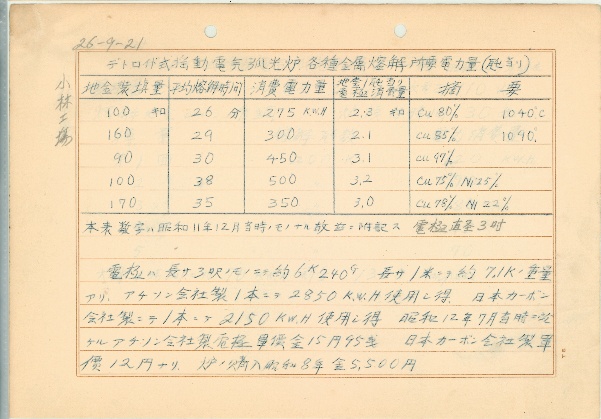 26-9-21
小林工場
デトロイト式揺動電気弧光炉各種金属熔解所要電力量(瓲当り)
地金装填量 平均熔解時間 消費電力量 地金1瓲当り電極消費量 摘要
100 瓩 26 分 275 K.W.H 2.3 瓩 Cu 80% 1040°C
160 29 300 2.1 Cu 85% 1090.
90 30 450 3.1 Cu 97%
100 38 500 3.2 Cu 75% Ni 25%
170 35 350 3.0 Cu 78% Ni 22%
本表数字ハ昭和11年12月当時ノモノナル故茲ニ附記ス 電極直径3吋
電極ハ長サ3呎ノモノニテ約6K240g 長サ1米ニテ約7.1K.重量
アリ. アチソン会社製1本ニテ2850 K.W.H使用シ得. 日本カーボン
会社製ニテ1本ニテ2150 K.W.H使用シ得 昭和12年7月当時ニ於
ケルアチソン会社製電極単價金15円95銭 日本カーボン会社製単
價12円ナリ. 炉ノ購入昭和8年金5,500円